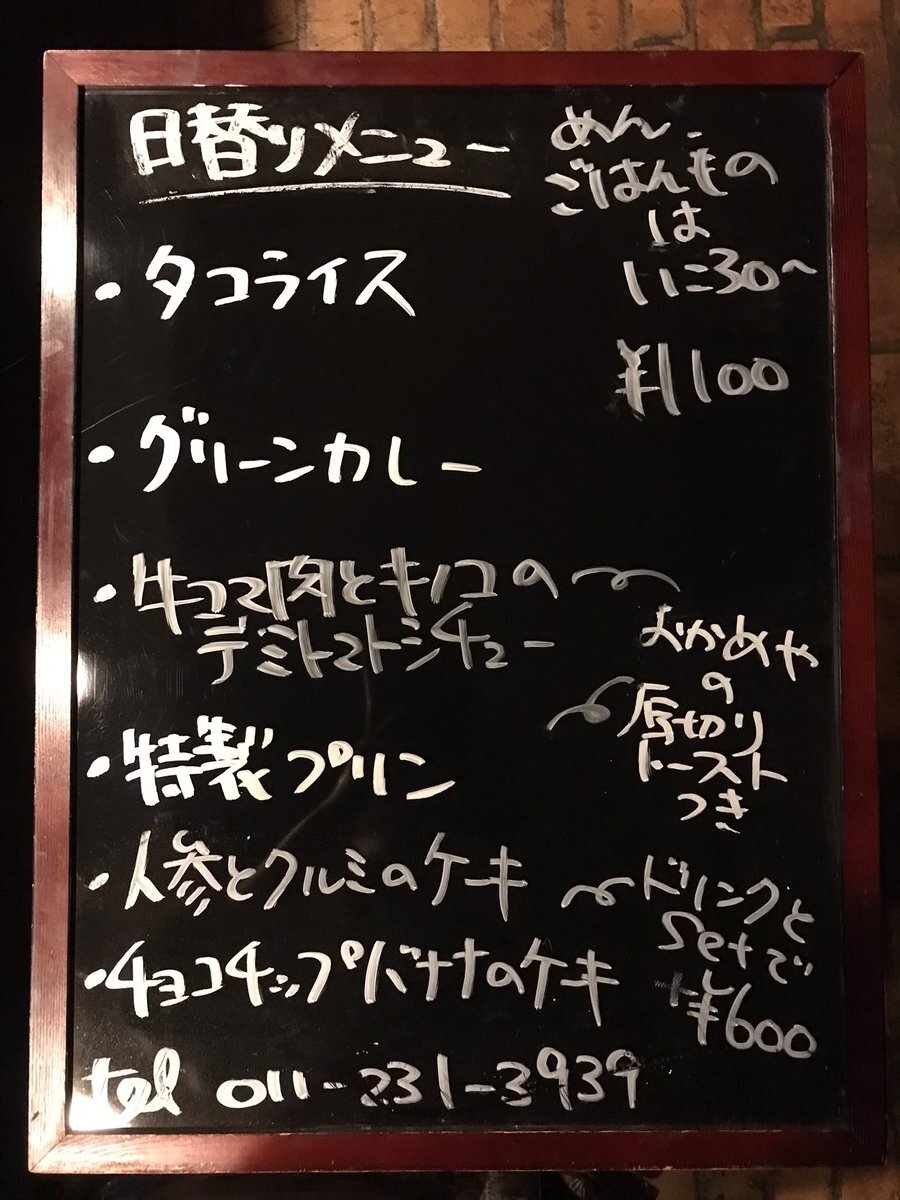 日替りメニュー
めん、
ごはんもの
は
11:30〜
・タコライス
¥1100
・グリーンカレー
・牛コマ肉とキノコの
デミトマトシチュー
おかめや
の
厚切り
トースト
つき
・特製プリン
・人参とクルミのケーキ
・チョコチップバナナのケーキ
ドリンクと
Setで
+¥600
tel 011-231-3939